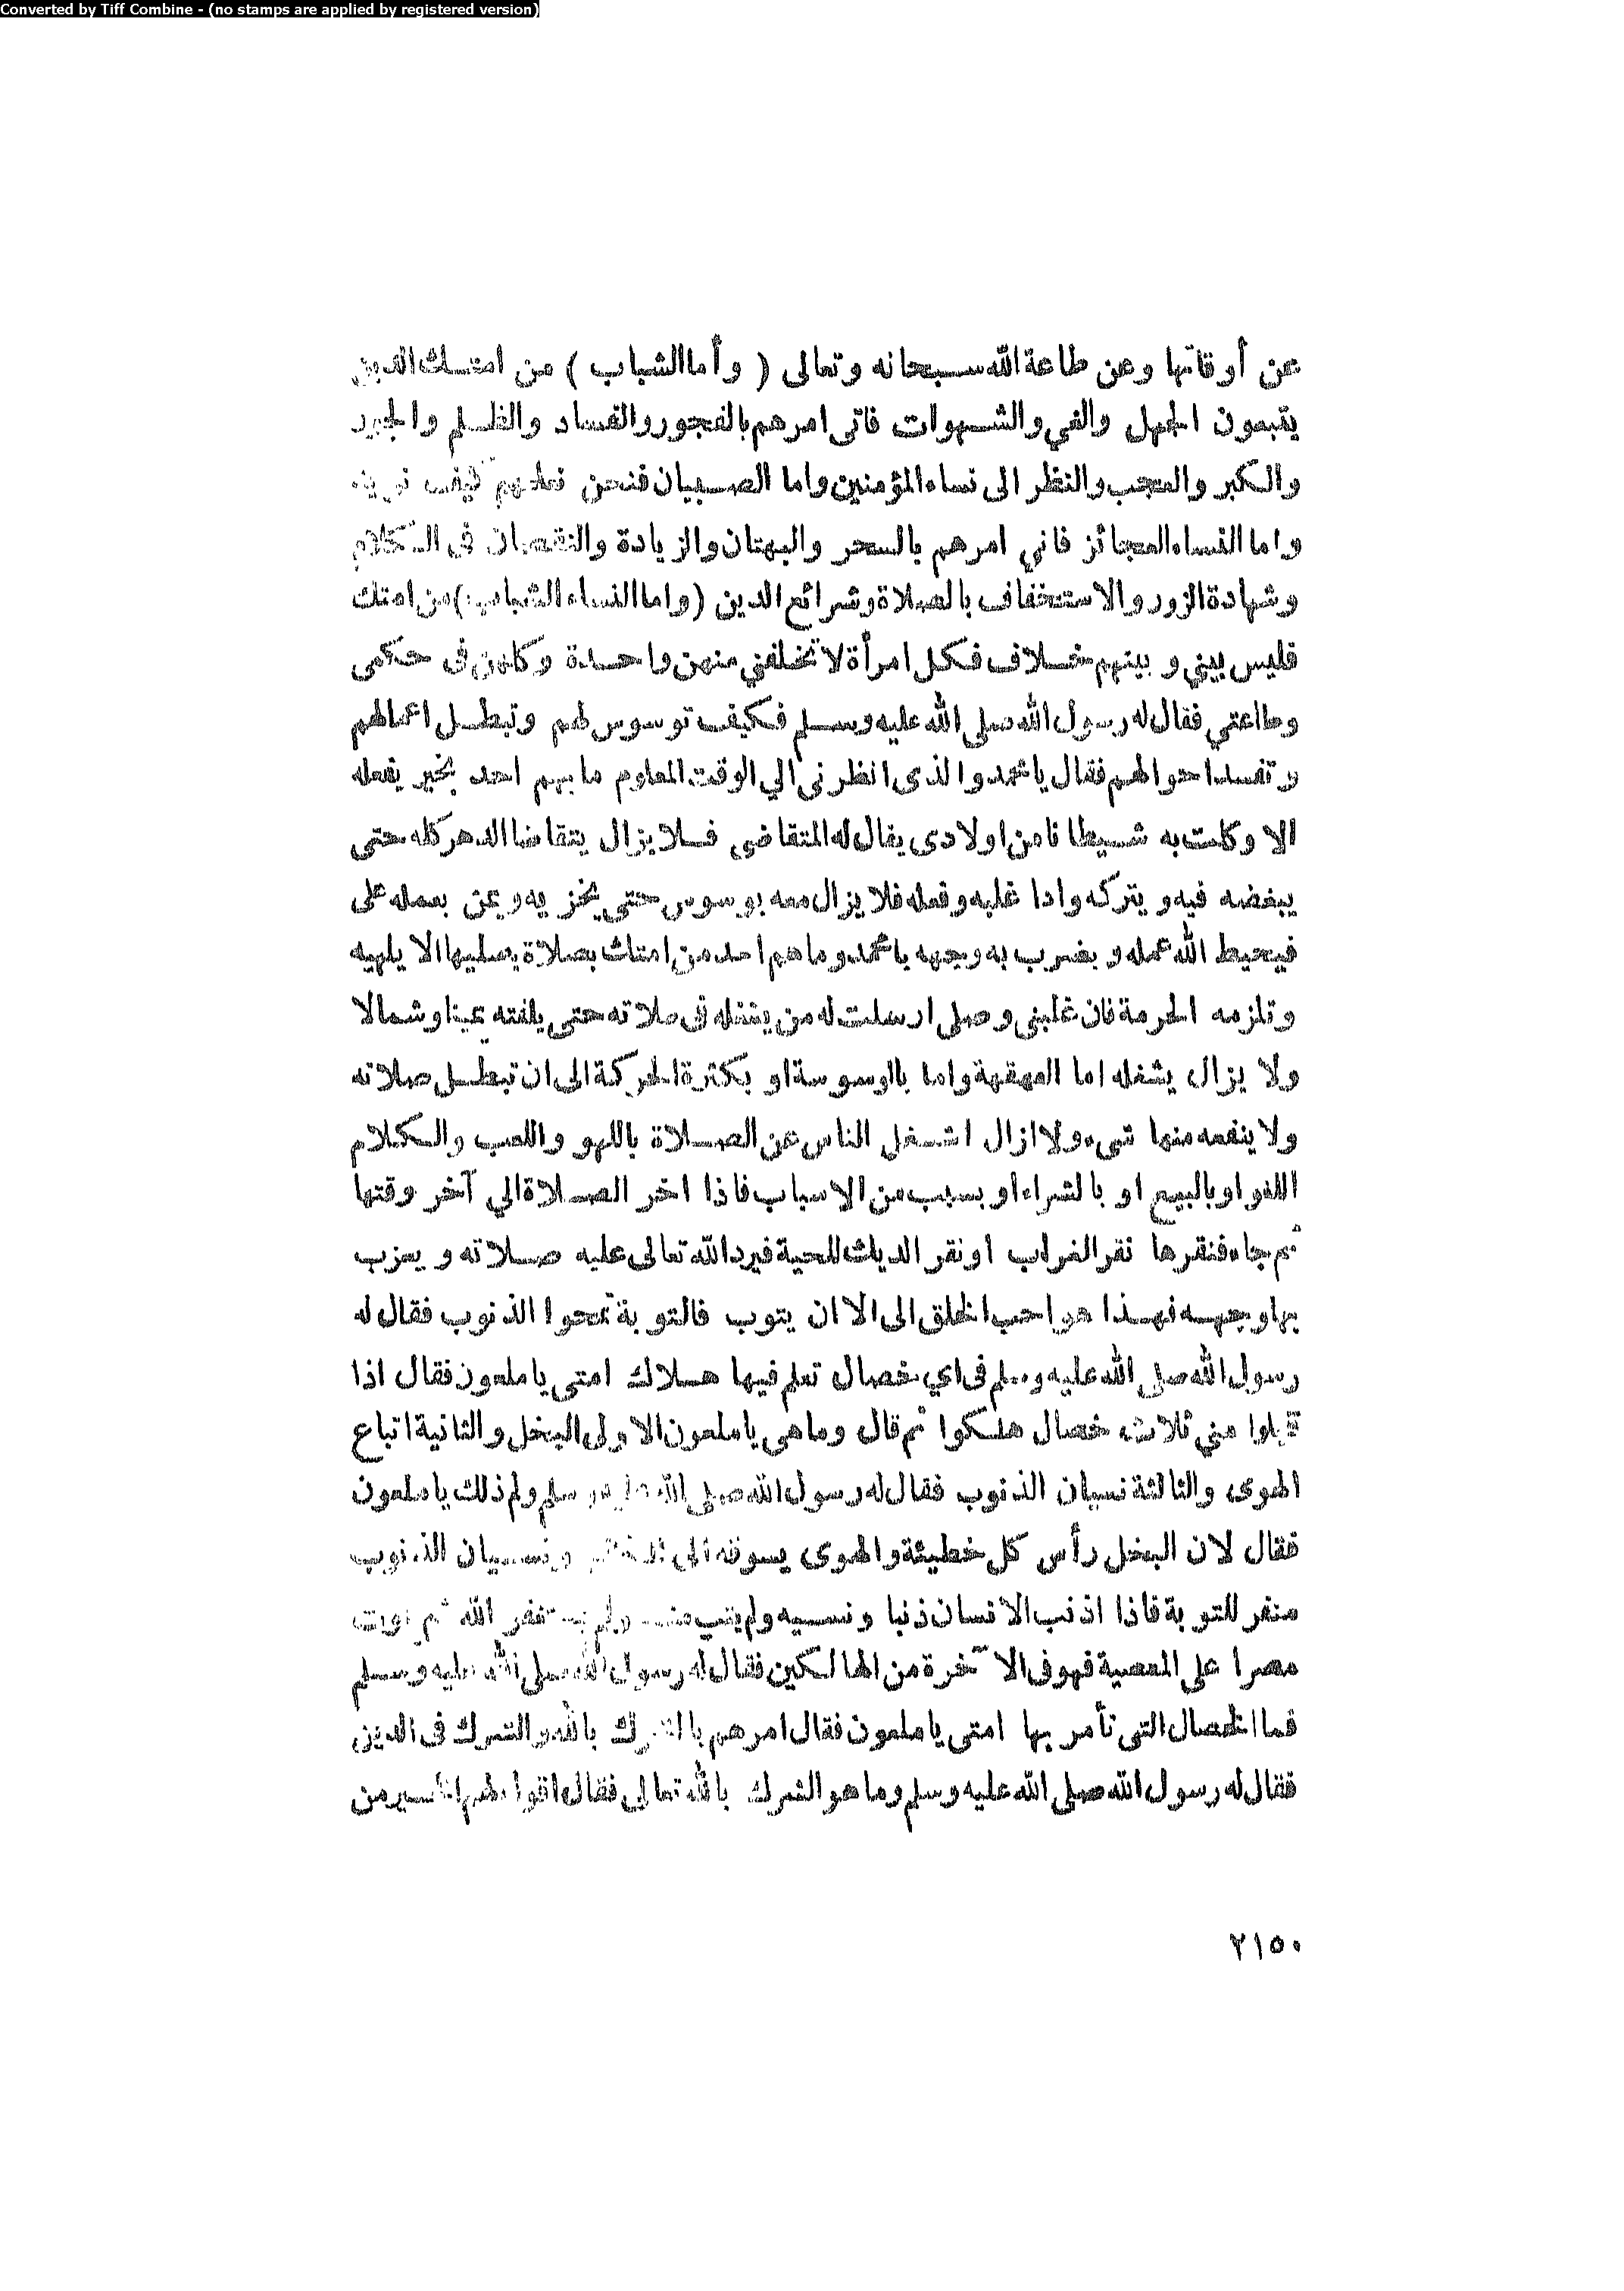 Converted by Tiff Combine - (no stamps are applied by registered version)
عن أوقاتها وعن طاعة الله سبحانه وتعالى ( وأما الشباب ) من امتك الذين
يتبعون الجهل والغي والشهوات فانى امرهم بالفجور والفساد والظلم والجبر
والكبر والعجب والنظر الى نساء المؤمنين واما الصبيان فنحن نعلمهم كيف نريد
واما النساء العجائز فاني امرهم بالسحر والبهتان والزيادة والنقصان فى الكلام
وشهادة الزور والاستخفاف بالصلاة وشرائع الدين (واما النساء الشباب) من امتك
فليس بيني وبينهم خلاف فكل امرأة لا تخلفني منهن واحدة وكلهن فى حكمى
وطاعتي فقال له رسول الله صلى الله عليه وسلم فكيف توسوس لهم وتبطل اعمالهم
وتفسد احوالهم فقال يا محمد والذى انظرنى الي الوقت المعلوم ما يهم احد بخير يفعله
الا وكلت به شيطانا من اولادى يقال له المتقاضى فلا يزال يتقاضا الدهر كله حتى
يبغضه فيه ويتركه وادا غلبه وفعله فلا يزال معه يوسوس حتى يخزيه ويمن بعمله على
فيحبط الله عمله ويضرب به وجهه يا محمد وما هم احد من امتك بصلاة يصليها الا يلهيه
وتلزمه الحرمة فان غلبنى وصلى ارسلت له من يشغله فى صلاته حتى يلفته يمينا وشمالا
ولا يزال يشغله اما القهقهة واما بالوسوسة او بكثرة الحركة الى ان تبطل صلاته
ولا ينفعه منها شىء ولا ازال اشغل الناس عن الصلاة باللهو واللعب والكلام
اللغو او بالبيع او بالشراء او بسبب من الاسباب فاذا اخر الصلاة الي آخر وقتها
ثم جاء فنقرها نقر الغراب او نقر الديك للحبة فيرد الله تعالى عليه صلاته ويضرب
بها وجهه فهذا هو احب الخلق الى الا ان يتوب فالتوبة تمحوا الذنوب فقال له
رسول الله صلى الله عليه وسلم فى اي خصال تعلم فيها هلاك امتى يا ملعون فقال اذا
قبلوا مني ثلاث خصال هلكوا ثم قال وما هى يا ملعون الاولى البخل والثانية اتباع
الهوى والثالثة نسيان الذنوب فقال له رسول الله صلى الله عليه وسلم ولم ذلك يا ملعون
فقال لان البخل رأس كل خطيئة والهوى يسوقه الى ونسيان الذنوب
منفر للتوبة فاذا اذنب الانسان ذنبا ونسيه ولم يتب منه ولم يستغفر الله ثم يموت
مصرا على المعصية فهو فى الآخرة من الهالكين فقال له رسول الله صلى الله عليه وسلم
فما الخصال التى تأمر بها امتى يا ملعون فقال امرهم بالشرك بالله والشرك فى الدين
فقال له رسول الله صلى الله عليه وسلم وما هو الشرك بالله تعالى فقال اقول لهم من
٢١٥٠